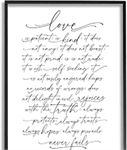 love
is patient is kind it does
not envy it does not boast it
is not proud is is not rude
it is not self-seeking it
is not easily angered keeps
no records of wrongs does
not delight in evil rejoices
with the truth always
protects always trusts
always hopes always perseveres
never fails